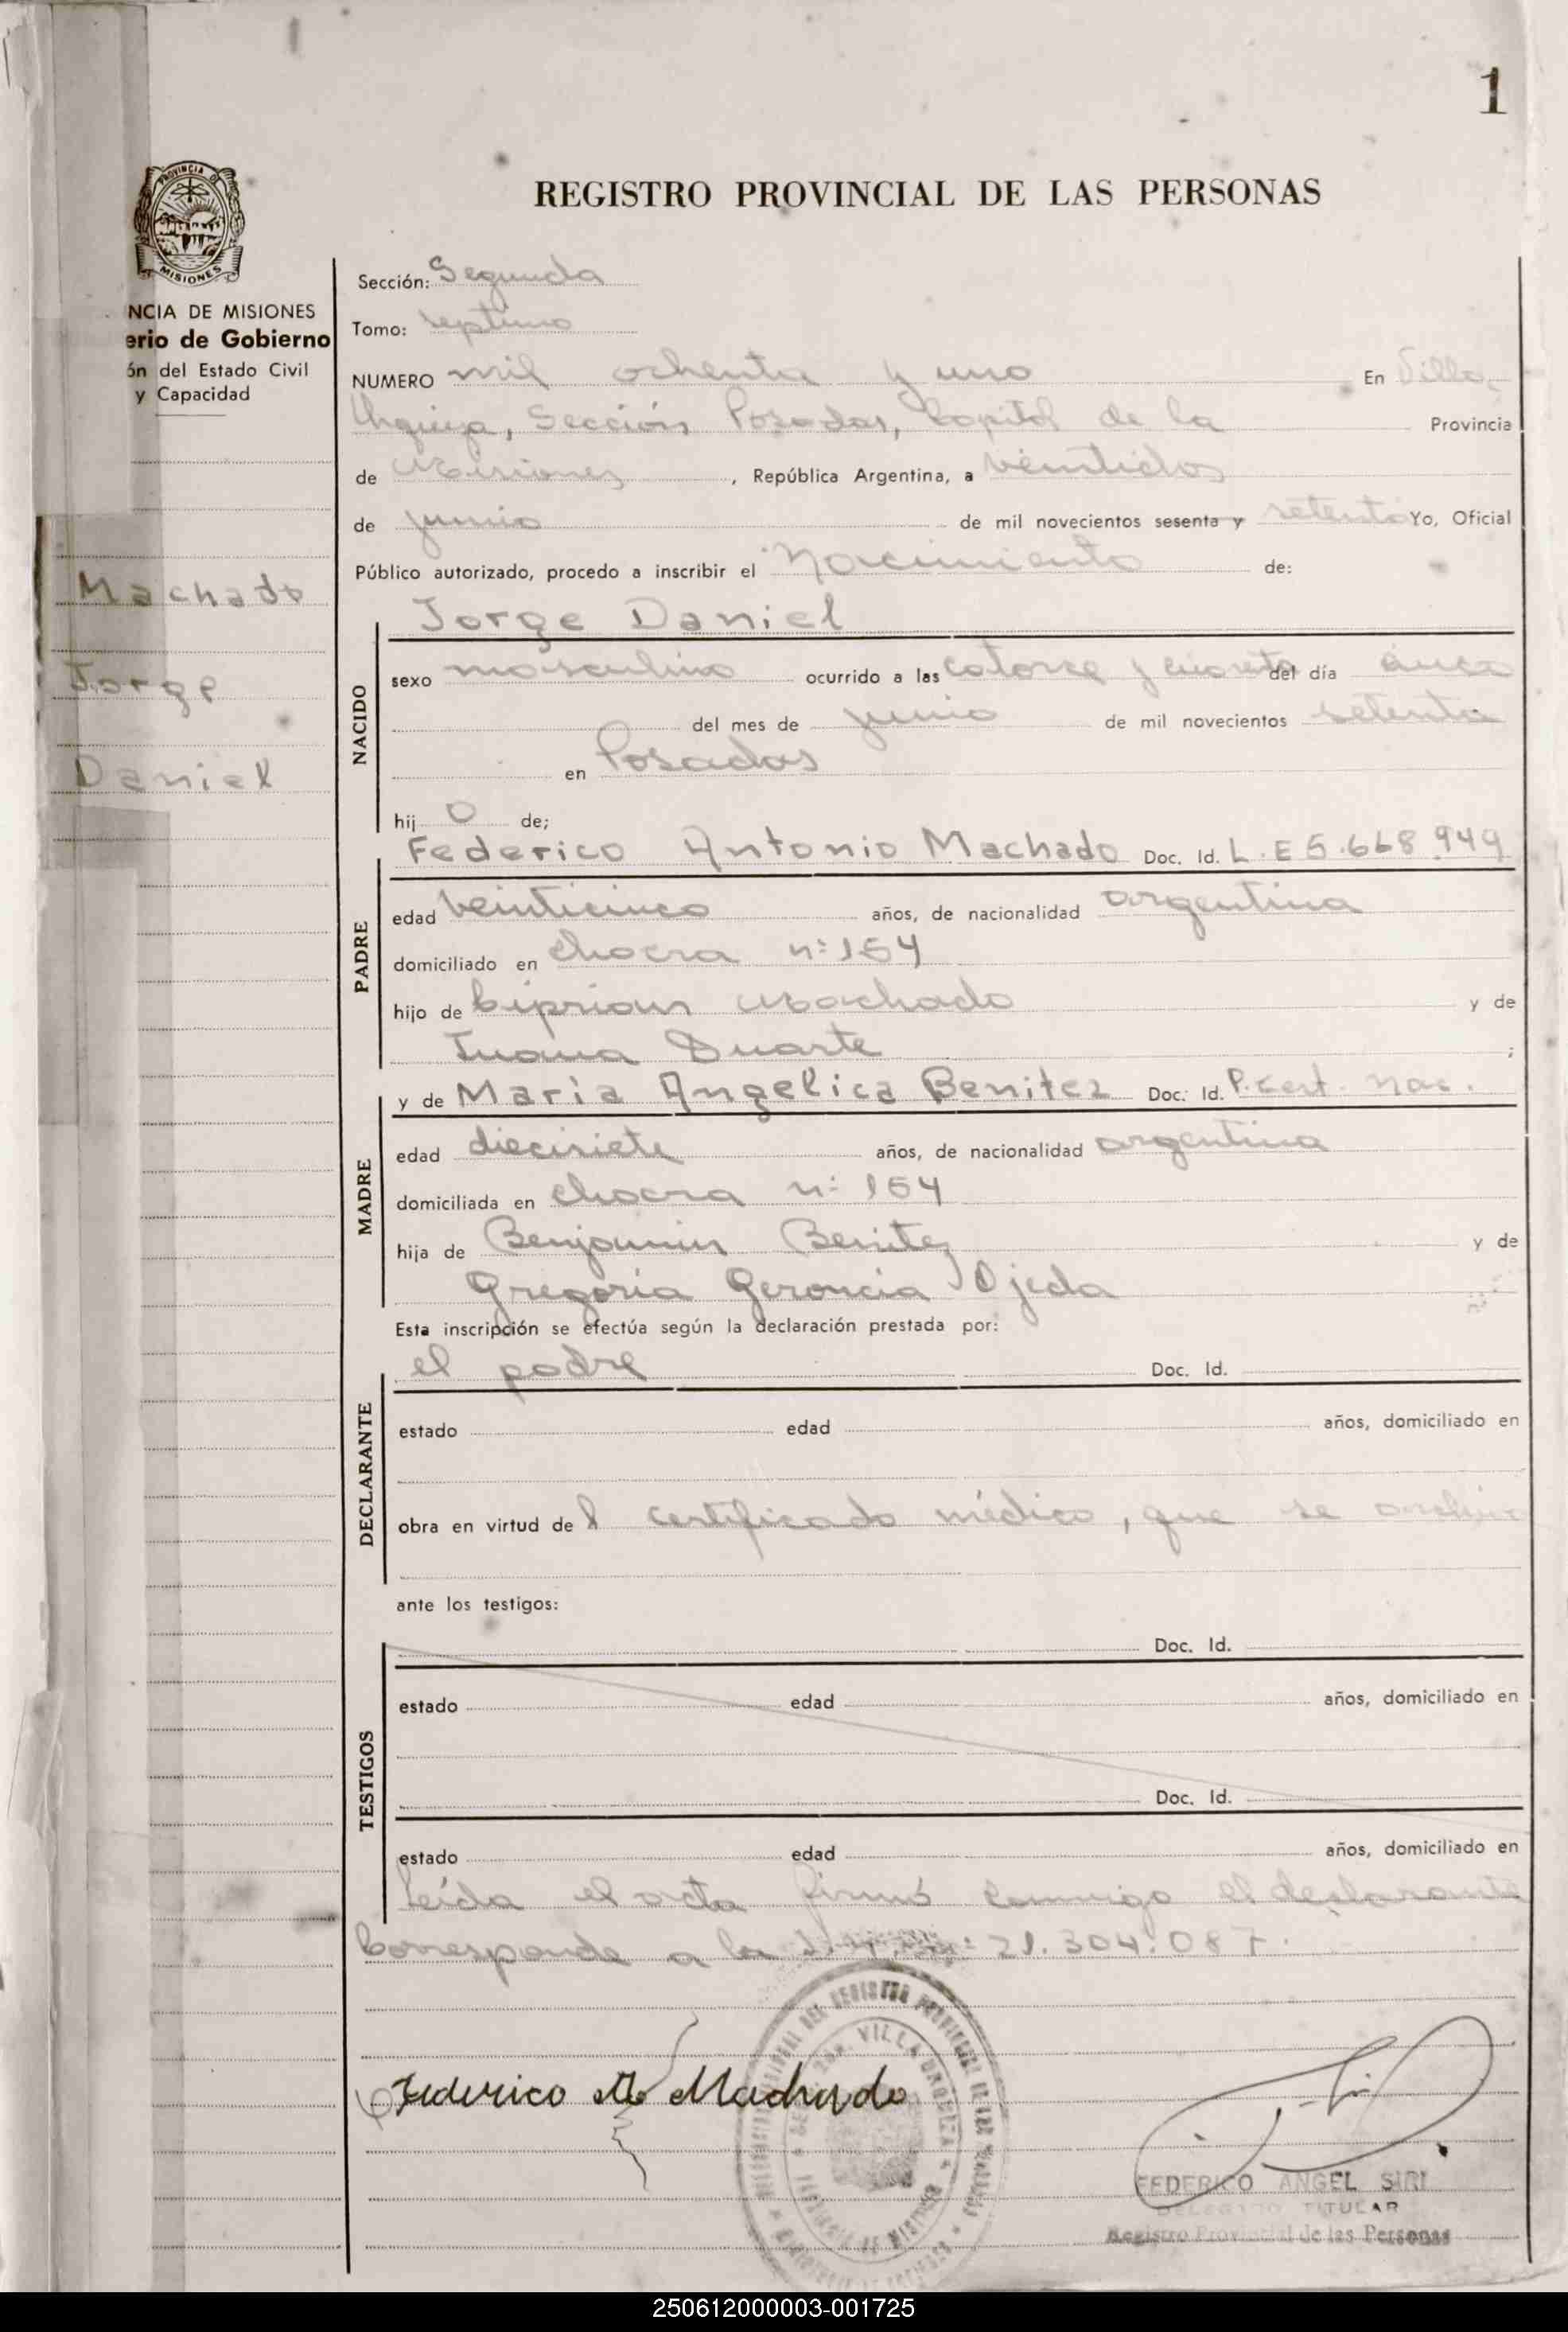 1
PROVINCIA DE
MISIONES
REGISTRO PROVINCIAL DE LAS PERSONAS
NCIA DE MISIONES
erio de Gobierno
ón del Estado Civil
y Capacidad
Machado
Jorge
Daniel
Sección: Segunda
Tomo: septimo
NUMERO mil ochenta y uno En Villa
Urquiza, Sección Posadas, Capital de la Provincia
de Misiones, República Argentina, a veintidos
de junio de mil novecientos sesenta y setenta Yo, Oficial
Público autorizado, procedo a inscribir el Nacimiento de:
Jorge Daniel
NACIDO
sexo masculino ocurrido a las catorce y cuarenta del día cinco
del mes de junio de mil novecientos setenta
en Posadas
hij o de;
Federico Antonio Machado Doc. Id. L.E 5.668.949
PADRE
edad veinticinco años, de nacionalidad argentina
domiciliado en chacra nº 154
hijo de Ciprian Machado y de
Juana Duarte ;
y de Maria Angelica Benitez Doc. Id. P. Cert. Nac.
MADRE
edad diecisiete años, de nacionalidad argentina
domiciliada en chacra nº 154
hija de Benjamin Benitez y de
Gregoria Geroncia Ojeda
Esta inscripción se efectúa según la declaración prestada por:
el padre Doc. Id.
DECLARANTE
estado edad años, domiciliado en
obra en virtud de l certificado médico, que se archiva
ante los testigos:
Doc. Id.
TESTIGOS
estado edad años, domiciliado en
Doc. Id.
estado edad años, domiciliado en
Leída el acta firmó conmigo el declarante
Corresponde a la 21.304.087.
Federico A Machado
VILLA URQUIZA
FEDERICO ANGEL SIRI
DELEGADO TITULAR
Registro Provincial de las Personas
250612000003-001725